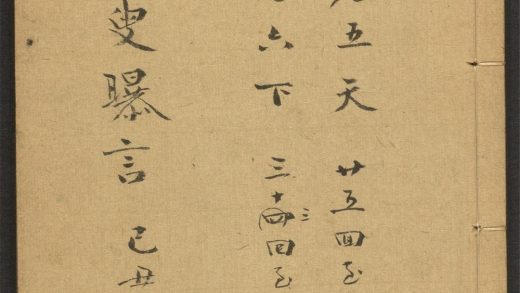 五天 廿五回至
六下 三十四回至
三
叟曝言 己丑